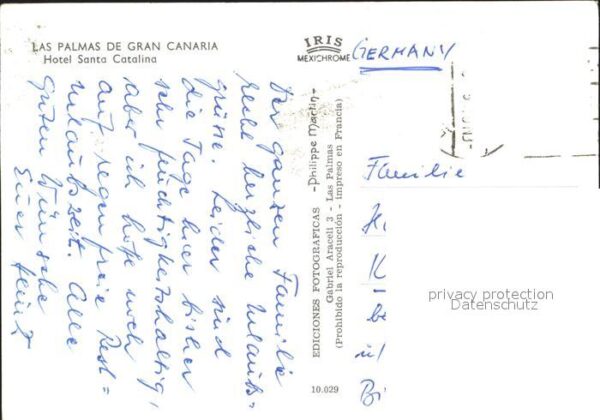 LAS PALMAS DE GRAN CANARIA
Hotel Santa Catalina
IRIS
MEXICHROME
GERMANY
Der ganzen Familie
recht herzliche Urlaubs=
grüsse. Leider sind
die Tage hier bisher
sehr feuchtigkeitshaltig,
aber ich hoffe noch
auf regenfreie Rest=
urlaubszeit. Alle
guten Wünsche
Euer Heinz
EDICIONES FOTOGRAFICAS -Philippe Martin-
Gabriel Araceli 3 - Las Palmas
(Prohibido la reproducción - impreso en Francia)
10.029
Familie
Hi
K
be
ü
Bi
privacy protection
Datenschutz